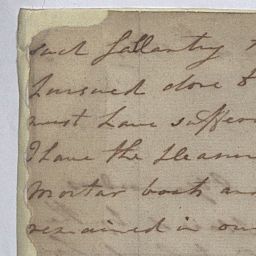 such gallantry
pursued close &
must have suffere
I have the pleasur
Mortar boats and
remained in our